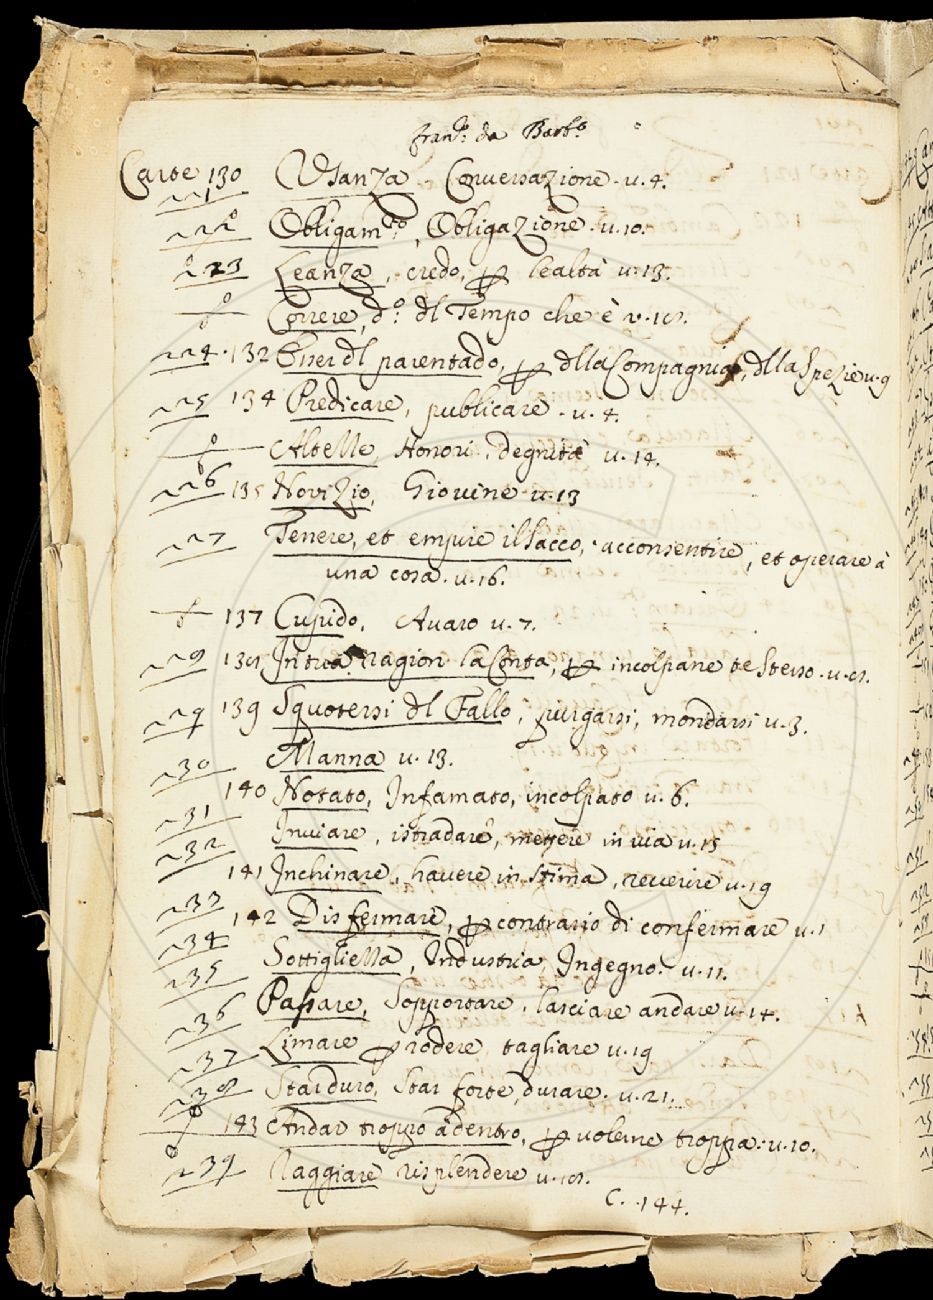 Fran.º da Barb.º
Carte 130 Usanza - Conversazione - u. 4.
121
122 Obligam.to, Obligazione - u. 10.
123 Leanza, credo, per lealtà u. 13.
Correre, d.º dl Tempo che è v. 18.
124 132 Esser dl parentado, per dlla Compagnia, dlla Spezie u. 9
125 134 Predicare, publicare - u. 4.
Altezze, Honori, degnità u. 14.
126 135 Novizio, Giovine u. 13
127 Tenere, et empire il sacco, acconsentire, et operare à
una cosa. u. 16.
137 Cupido, Avaro u. 7.
128 138 In tua ragion la Conta, per incolpane te stesso. u. 8.
129 139 Squotersi dl Fallo, purgarsi, mondarsi u. 3.
130 Manna u. 13.
140 Notato, Infamato, incolpato u. 6.
131 Inviare, istradare, mettere in via u. 15
132 141 Inchinare, havere in stima, reverire u. 19
133 142 Disfermare, per contrario di confermare u. 1
134 Sottigliezza, Industria, Ingegno. u. 11.
135
Passare, Sopportare, lasciare andare u. 14.
136 Limare per rodere, tagliare u. 19
137 Star duro, star forte, durare. u. 21.
138
143 Andar troppo adentro, per volerne troppa. u. 10.
139 Raggiare risplendere u. 18.
C. 144.